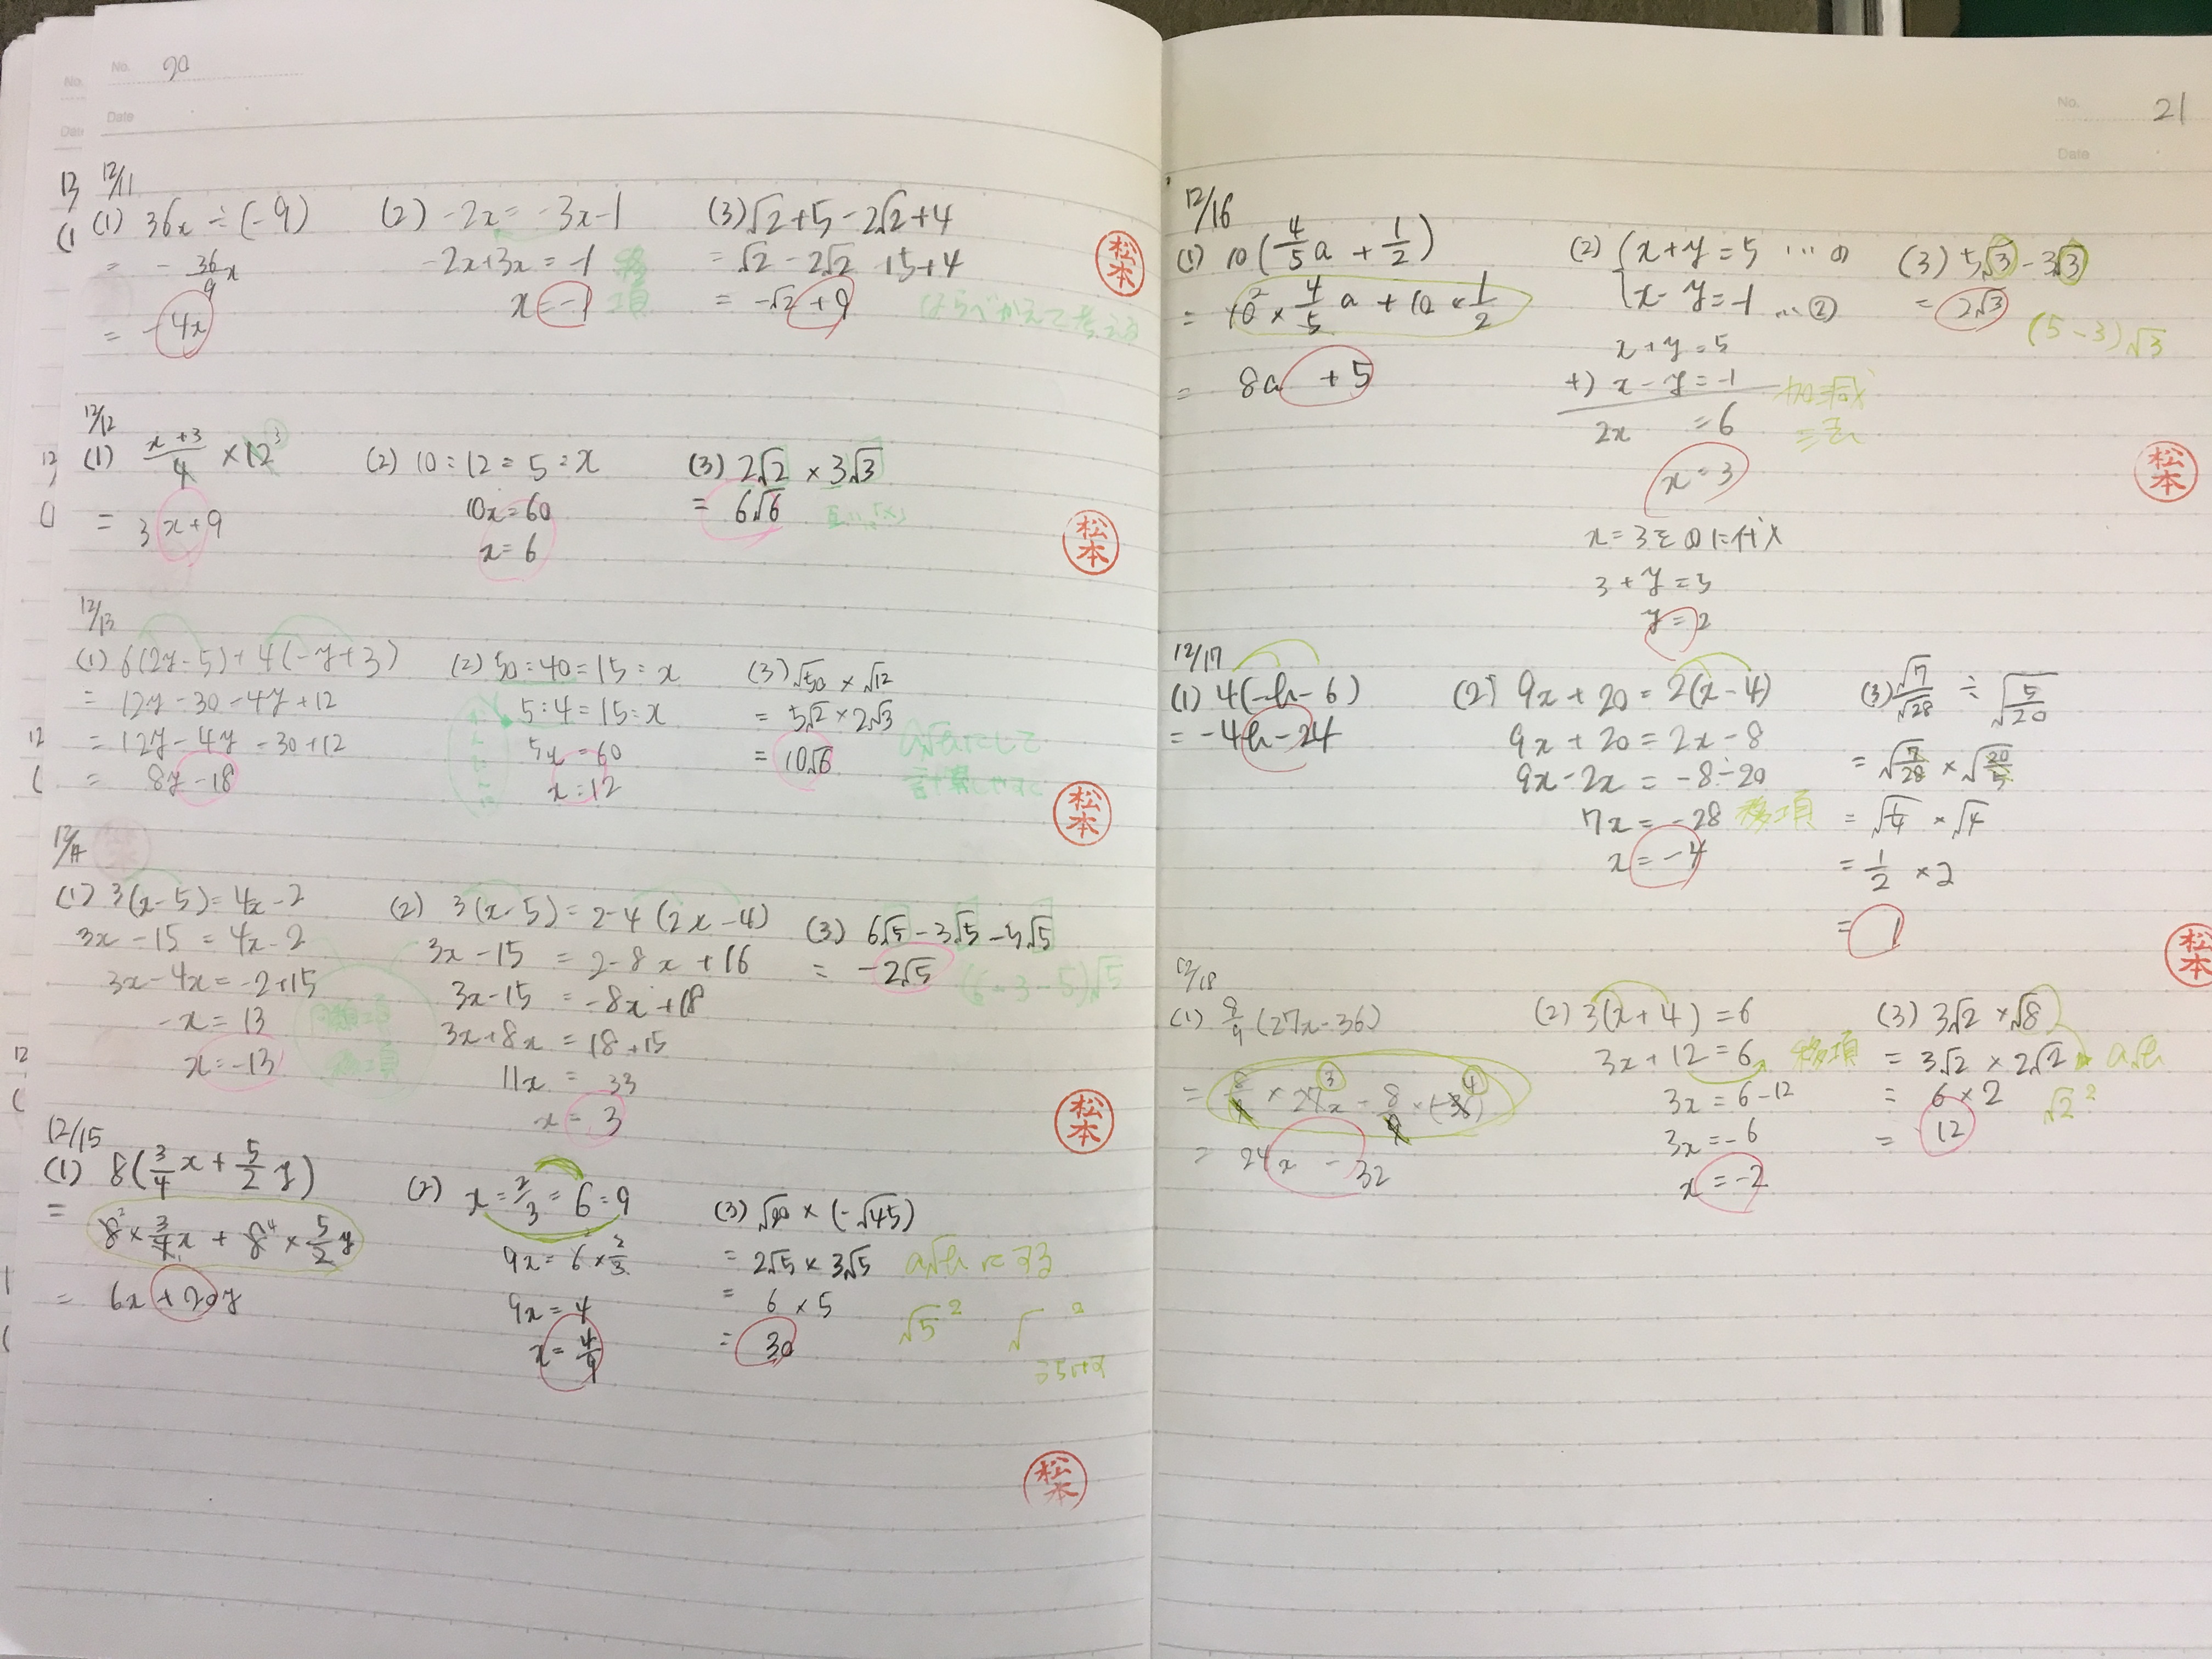 No. 20
Date
12/11
(1) 36x ÷ (-9)
= - 36/9 x
= -4x
(2) -2x = -3x-1
-2x+3x = -1 移項
x = -1
(3) √2+5-2√2+4
= √2-2√2+5+4
= -√2+9
ならべかえて考える
松本
12/12
(1) (x+3)/4 × 12 3
= 3x+9
(2) 10:12=5:x
10x=60
x=6
(3) 2√2 × 3√3
= 6√6
松本
12/13
(1) 6(2y-5)+4(-y+3)
= 12y-30-4y+12
= 12y-4y-30+12
= 8y-18
(2) 50:40=15:x
5:4=15:x
5x=60
x=12
(3) √50 × √12
= 5√2×2√3
= 10√6
a√bにして
計算しやすく
松本
12/14
(1) 3(x-5)=4x-2
3x-15=4x-2
3x-4x=-2+15
-x=13
x=-13
移項
(2) 3(x-5)=2-4(2x-4)
3x-15=2-8x+16
3x-15=-8x+18
3x+8x=18+15
11x=33
x=3
(3) 6√5-3√5-5√5
= -2√5
(6-3-5)√5
松本
12/15
(1) 8(3/4 x + 5/2 y)
= 8 2 × 3/4 x + 8 4 × 5/2 y
= 6x+20y
(2) x:2/3=6:9
9x=6 2 ×2/3
9x=4
x=4/9
(3) √20 × (-√45)
= 2√5×3√5
= 6×5
= 30
a√bにする
√5²
松本
No. 21
Date
12/16
(1) 10(4/5 a + 1/2)
= 10 2 × 4/5 a + 10 × 1/2
= 8a+5
(2) { x+y=5 …①
x-y=-1 …②
x+y=5
+) x-y=-1
2x =6
加減法
x=3
x=3を①に代入
3+y=5
y=2
(3) 5√3-3√3
= 2√3
(5-3)√3
松本
12/17
(1) 4(-b-6)
= -4b-24
(2) 9x+20=2(x-4)
9x+20=2x-8
9x-2x=-8-20
7x=-28 移項
x=-4
(3) √7/√28 ÷ √(5/20)
= √(7/28) × √(20/5)
= √(1/4) × √4
= 1/2 × 2
= 1
松本
12/18
(1) 8/9 (27x-36)
= 8/9 × 27 3 x - 8/9 × (-36) 4
= 24x-32
(2) 3(x+4)=6
3x+12=6 移項
3x=6-12
3x=-6
x=-2
(3) 3√2 × √8
= 3√2 × 2√2 a√b
= 6×2 √2²
= 12